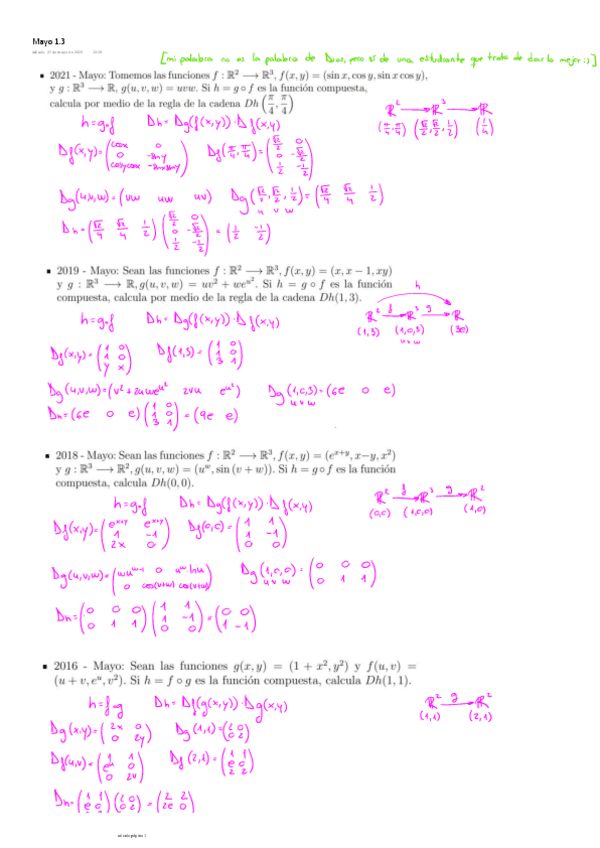 Mayo 1.3
[mi palabra no es la palabra de Dios, pero sí de una estudiante que trata de dar lo mejor :)]
▪ 2021 - Mayo: Tomemos las funciones f : ℝ² ⟶ ℝ³, f(x, y) = (sin x, cos y, sin x cos y),
y g : ℝ³ ⟶ ℝ, g(u, v, w) = uvw. Si h = g ∘ f es la función compuesta,
calcula por medio de la regla de la cadena Dh (π/4, π/4)
ℝ² → ℝ³ → ℝ
(π/4, π/4) (√2/2, √2/2, 1/2) (1/4)
h = g∘f Dh = Dg(f(x,y)) · Df(x,y)
Df(x,y) = (cosx 0; 0 -seny; cosycosx -senxseny) Df(π/4, π/4) = (√2/2 0; 0 -√2/2; 1/2 -1/2)
Dg(u,v,w) = (vw uw uv) Dg(√2/2, √2/2, 1/2) = (√2/4 √2/4 1/2)
u v w
Dh = (√2/4 √2/4 1/2) (√2/2 0; 0 -√2/2; 1/2 -1/2) = (1/2 -1/2)
▪ 2019 - Mayo: Sean las funciones f : ℝ² ⟶ ℝ³, f(x, y) = (x, x − 1, xy)
y g : ℝ³ ⟶ ℝ, g(u, v, w) = uv² + we^{u²}. Si h = g ∘ f es la función
compuesta, calcula por medio de la regla de la cadena Dh(1, 3).
h
ℝ² f→ ℝ³ g→ ℝ
(1,3) (1,0,3) (3e)
u v w
h = g∘f Dh = Dg(f(x,y)) · Df(x,y)
Df(x,y) = (1 0; 1 0; y x) Df(1,3) = (1 0; 1 0; 3 1)
Dg(u,v,w) = (v² + 2uwe^{u²} 2vu e^{u²}) Dg(1,0,3) = (6e 0 e)
u v w
Dh = (6e 0 e) (1 0; 1 0; 3 1) = (9e e)
▪ 2018 - Mayo: Sean las funciones f : ℝ² ⟶ ℝ³, f(x, y) = (e^{x+y}, x−y, x²)
y g : ℝ³ ⟶ ℝ², g(u, v, w) = (u^w, sin (v + w)). Si h = g ∘ f es la función
compuesta, calcula Dh(0, 0).
ℝ² f→ ℝ³ g→ ℝ²
(0,0) (1,0,0) (1,0)
h = g∘f Dh = Dg(f(x,y)) · Df(x,y)
Df(x,y) = (e^{x+y} e^{x+y}; 1 -1; 2x 0) Df(0,0) = (1 1; 1 -1; 0 0)
Dg(u,v,w) = (wu^{w-1} 0 u^w lnu; 0 cos(v+w) cos(v+w)) Dg(1,0,0) = (0 0 0; 0 1 1)
u v w
Dh = (0 0 0; 0 1 1) (1 1; 1 -1; 0 0) = (0 0; 1 -1)
▪ 2016 - Mayo: Sean las funciones g(x, y) = (1 + x², y²) y f(u, v) =
(u + v, e^u, v²). Si h = f ∘ g es la función compuesta, calcula Dh(1, 1).
h = f∘g Dh = Df(g(x,y)) · Dg(x,y)
ℝ² g→ ℝ²
(1,1) (2,1)
Dg(x,y) = (2x 0; 0 2y) Dg(1,1) = (2 0; 0 2)